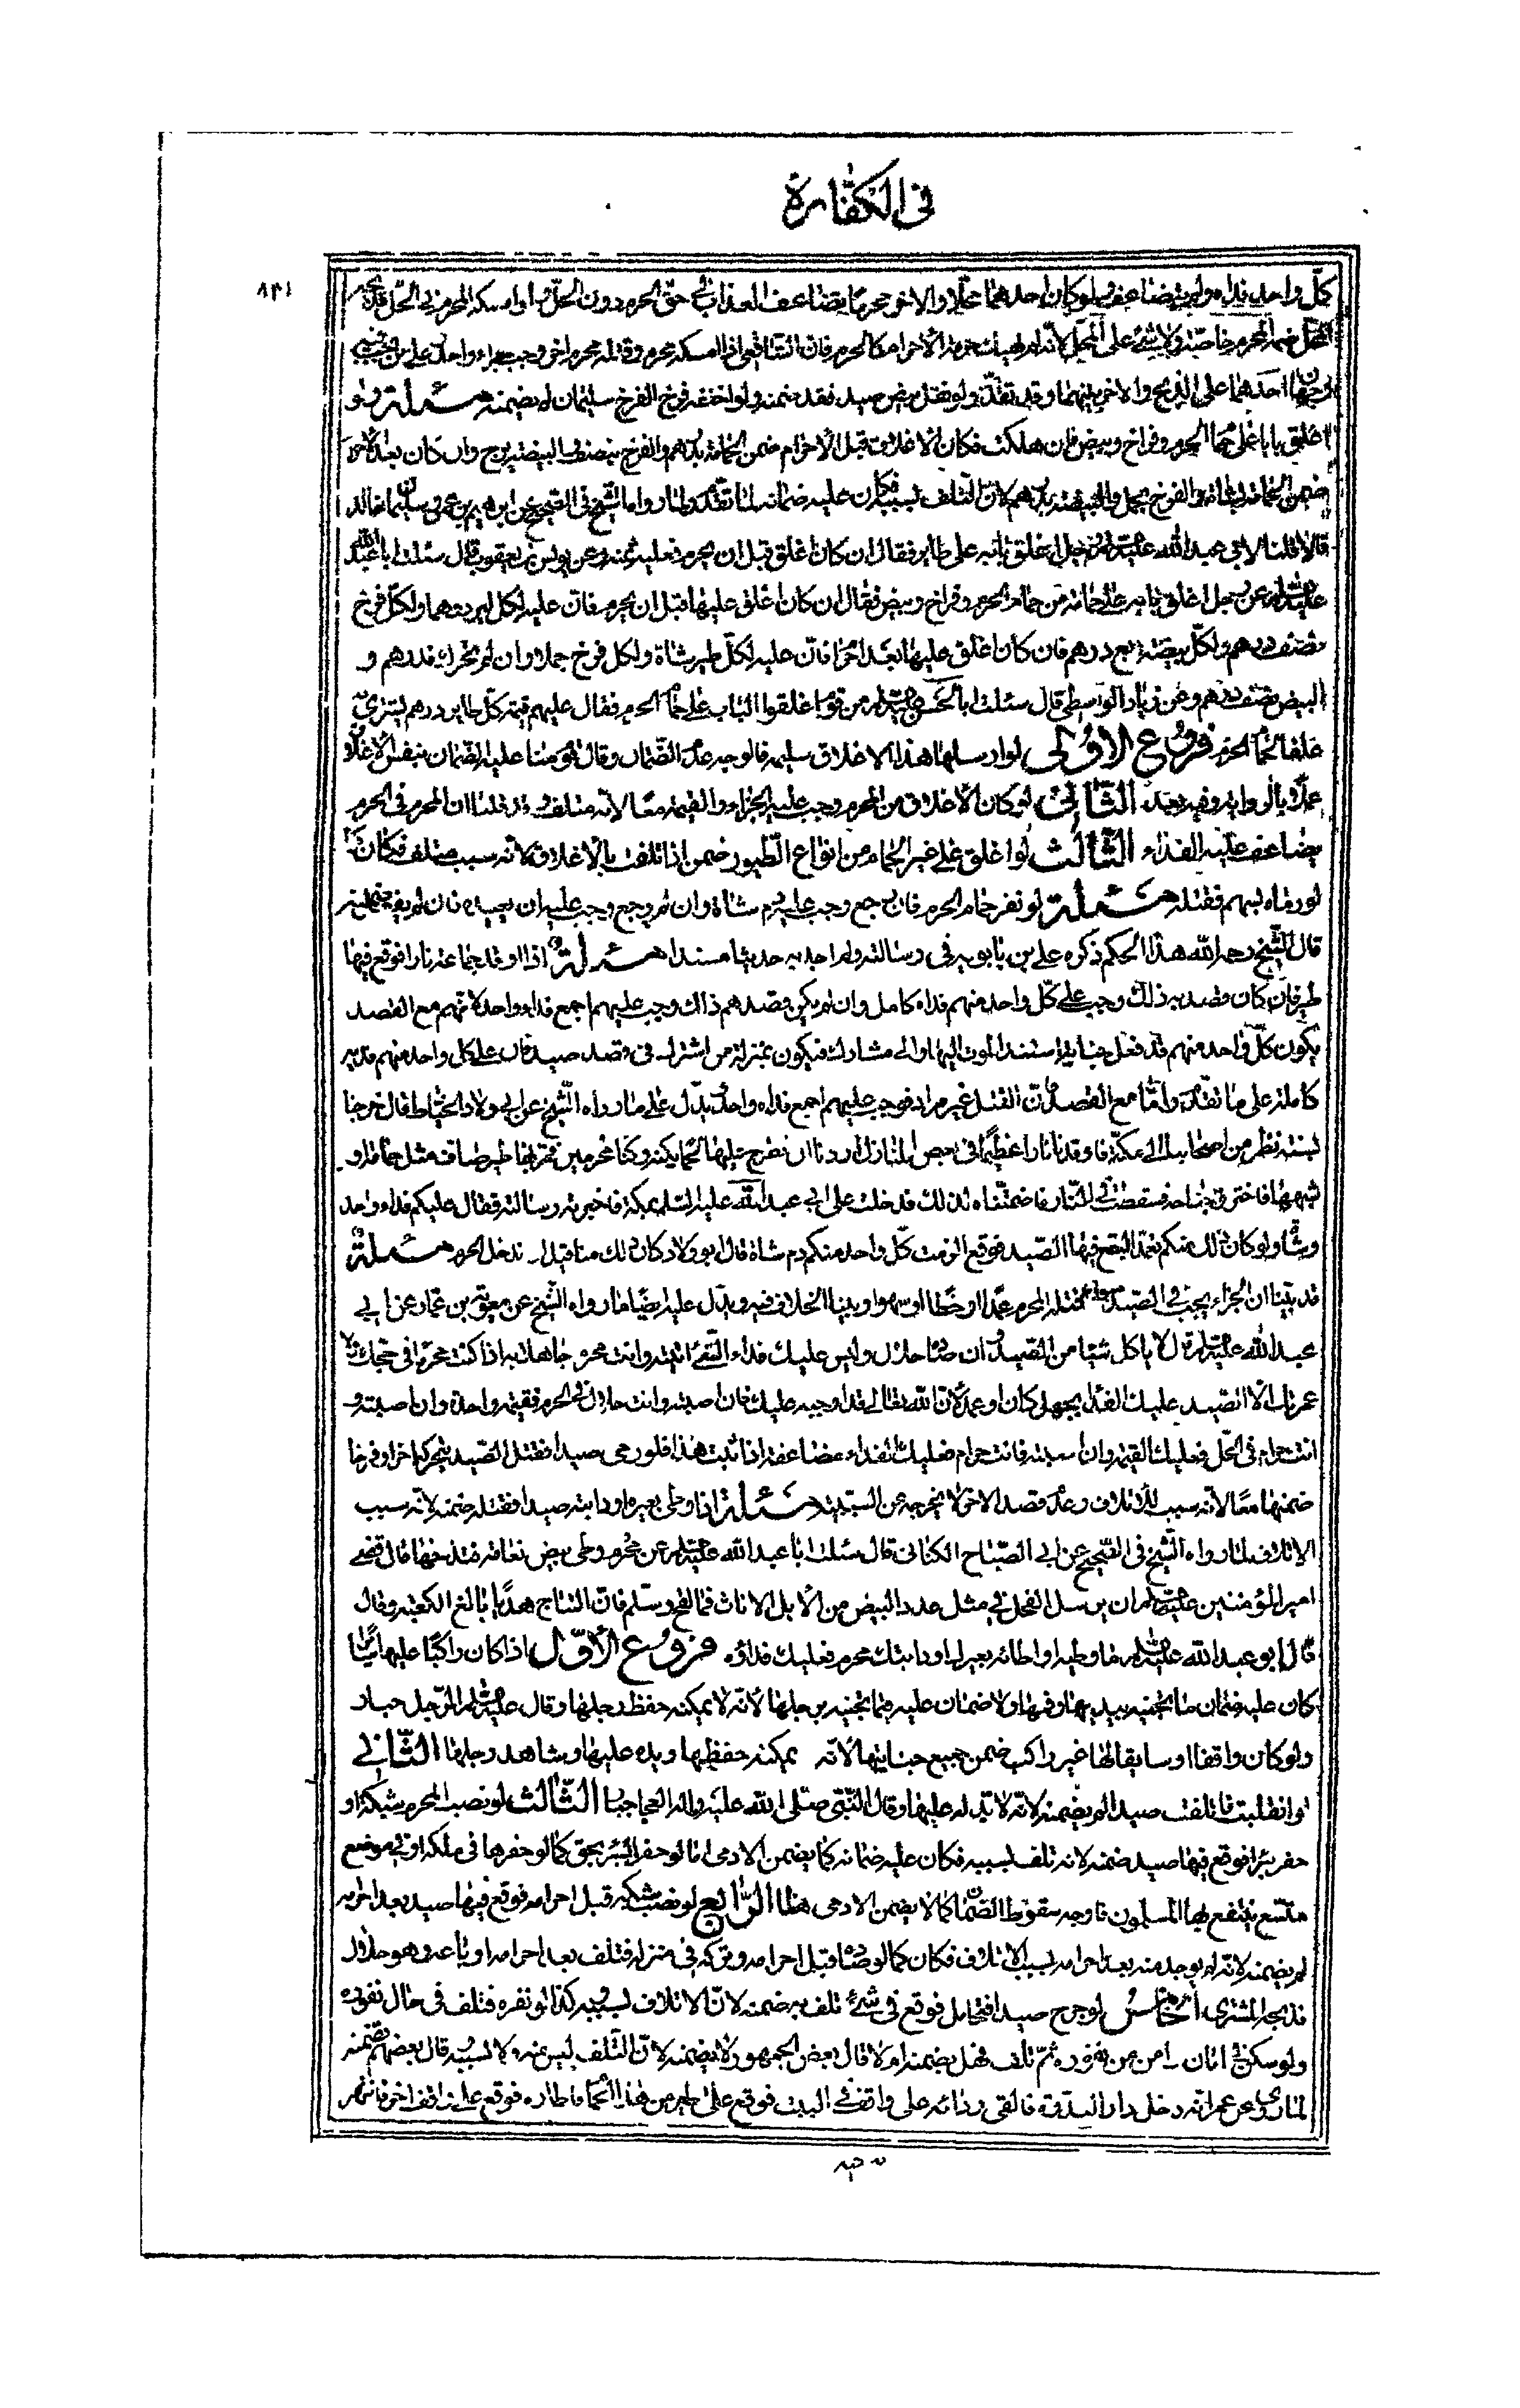 في الكفارة
٨٣١
كل واحد فداء ولم يتضاعف ولو كان احدهما محلا والاخر محرما يضاعف العذاب في حق المحرم دون المحل ولو امسكه المحرم في الحل فذبحه
المحل ضمنه المحرم خاصة ولا شئ على المحل لانه لم يهتك حرمة الاحرام ولا الحرم قال الشافعي اذا امسكه محرم وقتله محرم اخر وجب جزاء واحد
احدهما على الذابح والاخر وقد تقدم ولو نقل بيض صيد ففسد ضمنه ولو احضنه فخرج الفرخ سليما لم يضمنه مسئلة ولو
اغلق بابا على حمام الحرم وفراخ وبيض فان هلكت فكان الاغلاق قبل الاحرام ضمن الحمامة بدرهم والفرخ بنصف والبيضة بربع وان كان بعد الاحرام
ضمن الحمامة بشاة والفرخ بحمل والبيضة بدرهم لان التلف بسببه فكان عليه ضمانه لما تقدم ولما رواه الشيخ في الصحيح عن ابرهيم بن عمر وسليمان بن خالد
قالا قلنا لابي عبد الله عليه السلم رجل اغلق بابه على طاير فقال ان كان اغلق قبل ان يحرم فعليه ثمنه وعن يونس بن يعقوب قال سئلت ابا عبد الله
عليه السلم عن رجل اغلق بابه على حمامة من حمام الحرم وفراخ وبيض فقال ان كان اغلق عليها قبل ان يحرم فان عليه لكل طير درهما ولكل فرخ
نصف درهم ولكل بيضة ربع درهم فان كان اغلق عليها بعد احرامه فان عليه لكل طير شاة ولكل فرخ حملا وان لم يتحرك فدرهم و
البيض نصف درهم وعن زياد الواسطي قال سئلت ابا الحسن عليه السلم عن قوم اغلقوا الباب على حمام الحرم فقال عليهم قيمة كل طاير درهم يشتري به
علفا لحمام الحرم فروع الاولى لو ارسلها هذا الاغلاق سليمة فالوجه عدم الضمان وقال قوم منا عليه الضمان بنفس الاغلاق
عملا بالرواية وفيه بعد الثاني لو كان الاغلاق من المحرم وجب عليه الجزاء والقيمة معا لانه متلف وقد قلنا ان المحرم في الحرم
يضاعف عليه الفداء الثالث لو اغلق على غير الحمام من انواع الطيور ضمن اذا تلفت بالاغلاق لانه سبب متلف فكان كما
لو رماه بسهم فقتله مسئلة لو نفر حمام الحرم فان رجع وجب عليه دم شاة وان لم يرجع وجب عليه ان
قال الشيخ رحمه الله هذا الحكم ذكره علي بن بابويه في رسالته ولم اجد به حديثا مسندا مسئلة اذا اوقد جماعة نارا فوقع فيها
طير فان كان قصد به ذلك وجب على كل واحد منهم فداء كامل وان لم يكن قصدهم ذاك وجب عليهم اجمع فداء واحد لانهم مع القصد
يكون كل واحد منهم قد فعل جناية استند الموت اليها والى مشاركه فيكون بمنزلة من اشترك في قصد صيد فان على كل واحد منهم فدية
كاملة على ما تقدم واما مع القصد لان القتل غير مراد فوجب عليهم اجمع فداء واحد يدل على ما رواه الشيخ عن ابي ولاد الحناط قال خرجنا
بستة نفر من اصحابنا الى مكة فاوقدنا نارا عظيمة في بعض المنازل اردنا ان نطرح عليها لحما يكنه وكنا محرمين فمر بها طير صاف مثل حمامة او
شبهها فاحترق جناحه فسقط في النار فاغتممنا لذلك فدخلت على ابي عبد الله عليه السلم بمكة فاخبرته وسالته فقال عليكم فداء واحد
دم شاة ولو كان ذلك منكم تعمدا ليقع فيها الصيد فوقع الزمت كل واحد منكم دم شاة قال ابو ولاد كان ذلك منا قبل ان ندخل الحرم مسئلة
قد بينا ان الجزاء يجب في الصيد سواء قتله المحرم عمدا او خطا او سهوا وبينا الخلاف فيه ويدل عليه ايضا ما رواه الشيخ عن معوية بن عمار عن ابي
عبد الله عليه السلم قال لا تاكل شيئا من الصيد وان صاده حلال وليس عليك فداء لشئ اتيته وانت محرم جاهلا به اذا كنت محرما في حجك ولا
عمرتك الا الصيد عليك الفداء بجهل كان او عمد لان الله تعالى قد اوجبه عليك فان اصبته وانت حلال في الحرم فقيمة واحدة وان اصبته و
انت حرام في الحل فعليك القيمة وان اصبته وانت حرام فعليك الفداء مضاعفة اذا ثبت هذا فلو رمى صيدا فقتل الصيد ثم اخر او فرخا
ضمنهما معا لانه سبب للاتلاف وعدم قصد الاخر لا يخرجه عن السببية مسئلة اذا وطى بعيره او دابته صيدا فقتله ضمنه لانه سبب
الاتلاف لما رواه الشيخ في الصحيح عن ابي الصباح الكناني قال سئلت ابا عبد الله عليه السلم عن محرم وطى بيض نعامة فشدخها قال قضى
امير المؤمنين عليه السلم ان يرسل الفحل في مثل عدد البيض من الابل الاناث فما لقح وسلم فان النتاج هديا بالغ الكعبة وقال
قال ابو عبد الله عليه السلم ما وطيه او وطائه بعيرك او دابتك محرم فعليك فداؤه فروع الاول اذا كان راكبا عليها سايرا
كان عليه ضمان ما تجنيه بيديها وفيها ولا ضمان عليه فيما تجنيه برجلها لانه لا يمكنه حفظ رجلها وقال عليه السلم الرجل جبار
ولو كان واقفا او سايقا لها غير راكب ضمن جميع جنايتها لانه يمكنه حفظها ويده عليها ويشاهد رجلها الثاني
لو انفلتت فاتلفت صيدا لم يضمنه لانه لا يد له عليها وقال النبي صلى الله عليه واله العجماء جبار الثالث لو نصب المحرم شبكة او
حفر بئرا فوقع فيها صيد ضمنه لانه تلف بسببه فكان عليه ضمانه كما يضمن الادمي اما لو حفر البئر بحق كما لو حفرها في ملكه او في موضع
متسع ينتفع بها المسلمون فالوجه سقوط الضمان كما لا يضمن الادمي هنا الرابع لو نصب شبكة قبل احرامه فوقع فيها صيد بعد احرامه
لم يضمنه لانه لم يوجد منه بعد احرامه بسبب الاتلاف فكان كما لو صاده قبل احرامه وتركه في منزله فتلف بعد احرامه او باعه وهو حلال
فذبحه المشتري الخامس لو جرح صيدا فتحامل فوقع في شئ تلف به ضمنه لان الاتلاف بسببه كذا لو نفره فتلف في حال نفوره
ولو سكن في مكان وامن من نفوره ثم تلف فهل يضمنه ام لا قال بعض الجمهور لا يضمنه لان التلف ليس منه ولا بسببه قال بعضهم يضمنه
لما روى عن عمر انه دخل دار الندوة فالقى ردائه على واقف في البيت فوقع عليه طير من هذا الحمام فاطاره فوقع على واقف اخر فانتهز